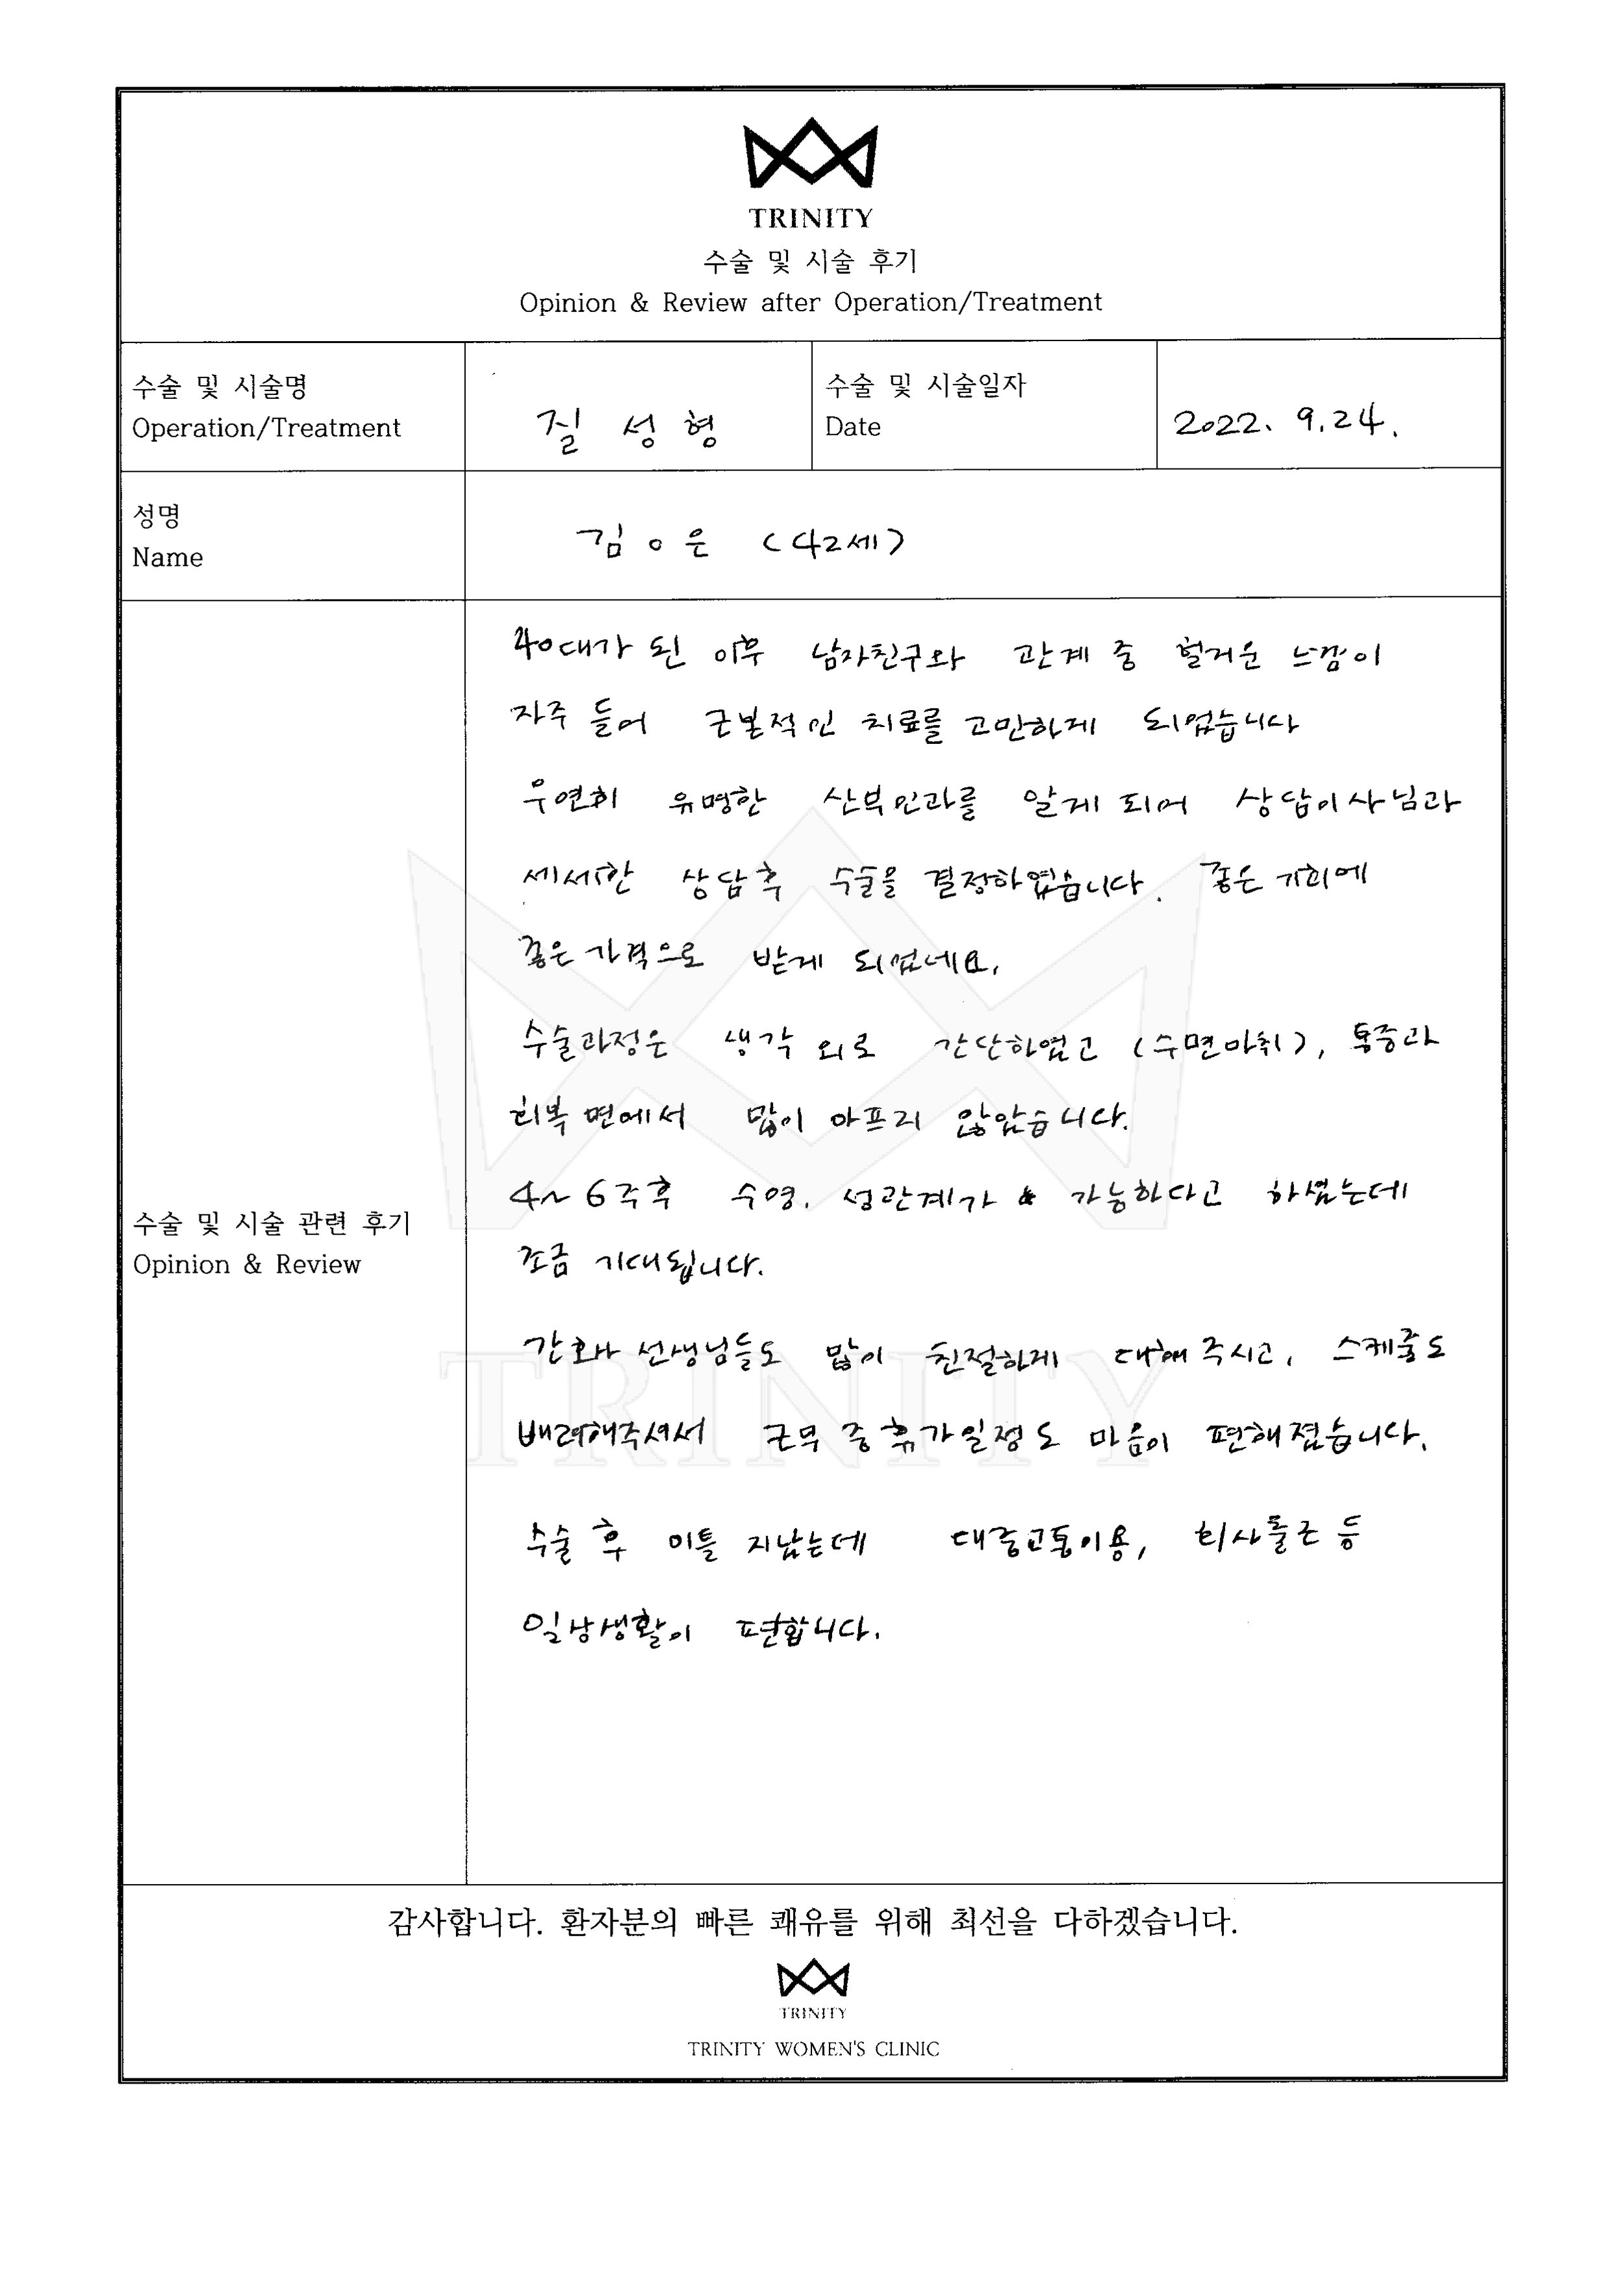 TRINITY
수술 및 시술 후기
Opinion & Review after Operation/Treatment
수술 및 시술명
Operation/Treatment
질 성형
수술 및 시술일자
Date
2022. 9.24.
성명
Name
김 ㅇ 은 (42세)
수술 및 시술 관련 후기
Opinion & Review
40대가 된 이후 남자친구와 관계 중 헐거운 느낌이
자주 들어 근본적인 치료를 고민하게 되었습니다
우연히 유명한 산부인과를 알게 되어 상담이사님과
세세한 상담후 수술을 결정하였습니다. 좋은 기회에
좋은 가격으로 받게 되었네요.
수술과정은 생각 외로 간단하였고 (수면마취), 통증과
회복 면에서 많이 아프지 않았습니다.
4~6주후 수영, 성관계가 가능하다고 하셨는데
조금 기대됩니다.
간호사 선생님들도 많이 친절하게 대해 주시고, 스케줄도
배려해주셔서 근무 중 휴가일정도 마음이 편해졌습니다.
수술 후 이틀 지났는데 대중교통이용, 회사출근 등
일상생활이 편합니다.
TRINITY
감사합니다. 환자분의 빠른 쾌유를 위해 최선을 다하겠습니다.
TRINITY
TRINITY WOMEN'S CLINIC